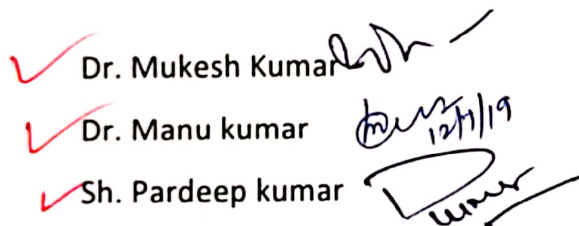 Dr. Mukesh Kumar
Dr. Manu kumar
12/11/19
Sh. Pardeep kumar